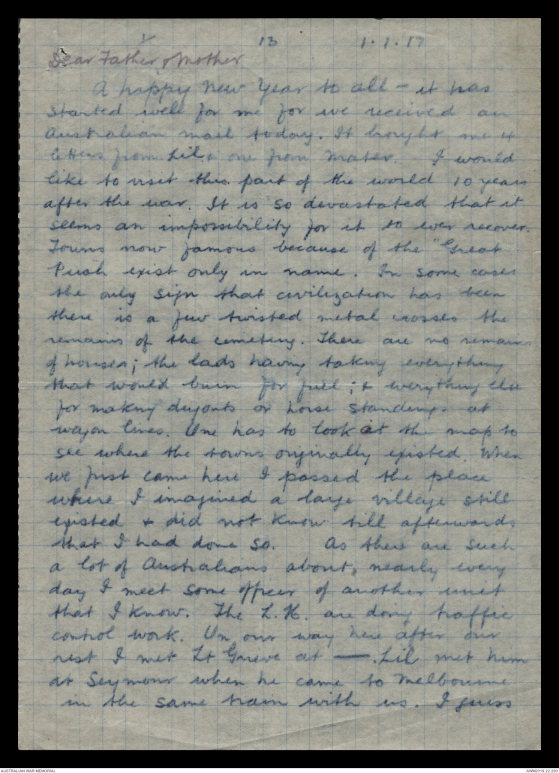 13 1.1.17
Dear Father & Mother
A happy New Year to all - it has
started well for me for we received an
Australian mail today. It brought me 4
letters from Lil & one from Mater. I would
like to visit this part of the world 10 years
after the war. It is so devastated that it
seems an impossibility for it to ever recover.
Towns now famous because of the "Great
Push exist only in name. In some cases
the only sign that civilization has been
there is a few twisted metal crosses the
remains of the cemetery. There are no remains
of houses; the lads having taking everything
that would burn for fuel; & everything else
for making dugouts or horse standings at
wagon lines. One has to look at the map to
see where the towns originally existed. When
we first came here I passed the place
where I imagined a large village still
existed & did not know till afterwards
that I had done so. As there are such
a lot of Australians about, nearly every
day I meet some officer of another unit
that I know. The L.H. are doing traffic
control work. On our way here after our
rest I met Lt Grieve at —. Lil met him
at Seymour when he came to Melbourne
in the same train with us. I guess
AUSTRALIAN WAR MEMORIAL